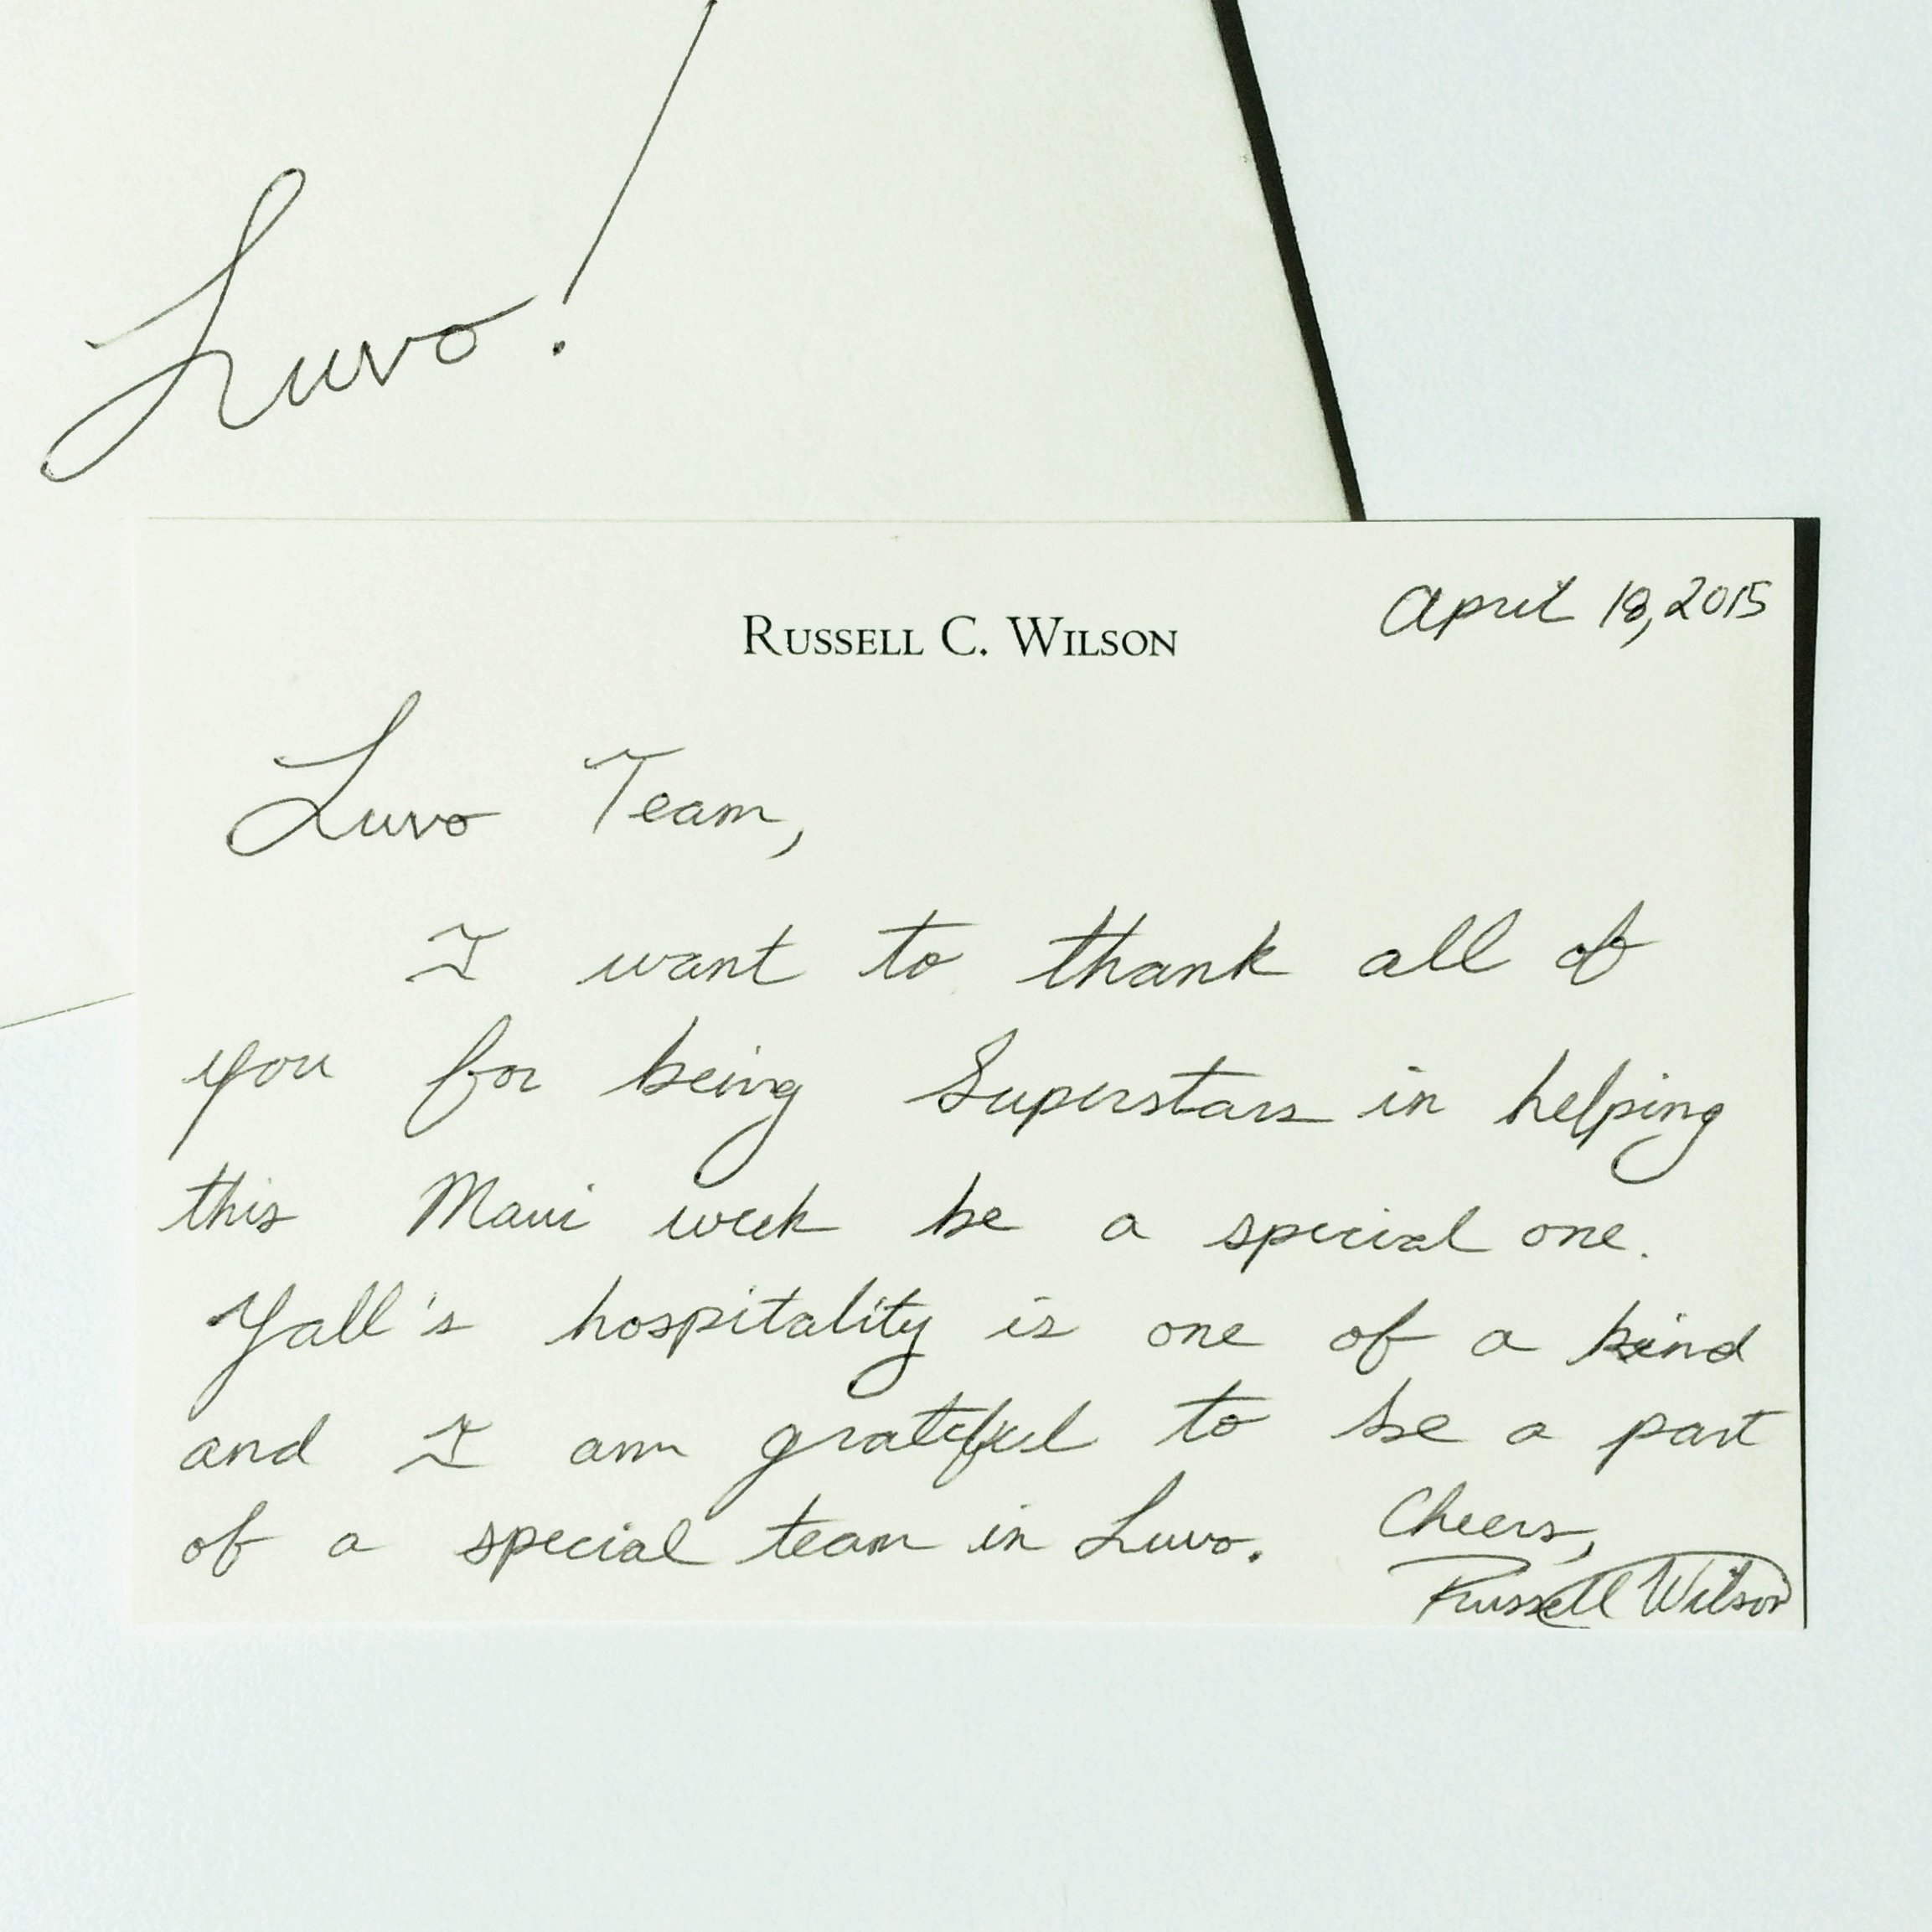 Luvo!
RUSSELL C. WILSON
April 18, 2015
Luvo Team,
I want to thank all of
you for being Superstars in helping
this Maui week be a special one.
Yall's hospitality is one of a kind
and I am grateful to be a part
of a special team in Luvo.
Cheers,
Russell Wilson